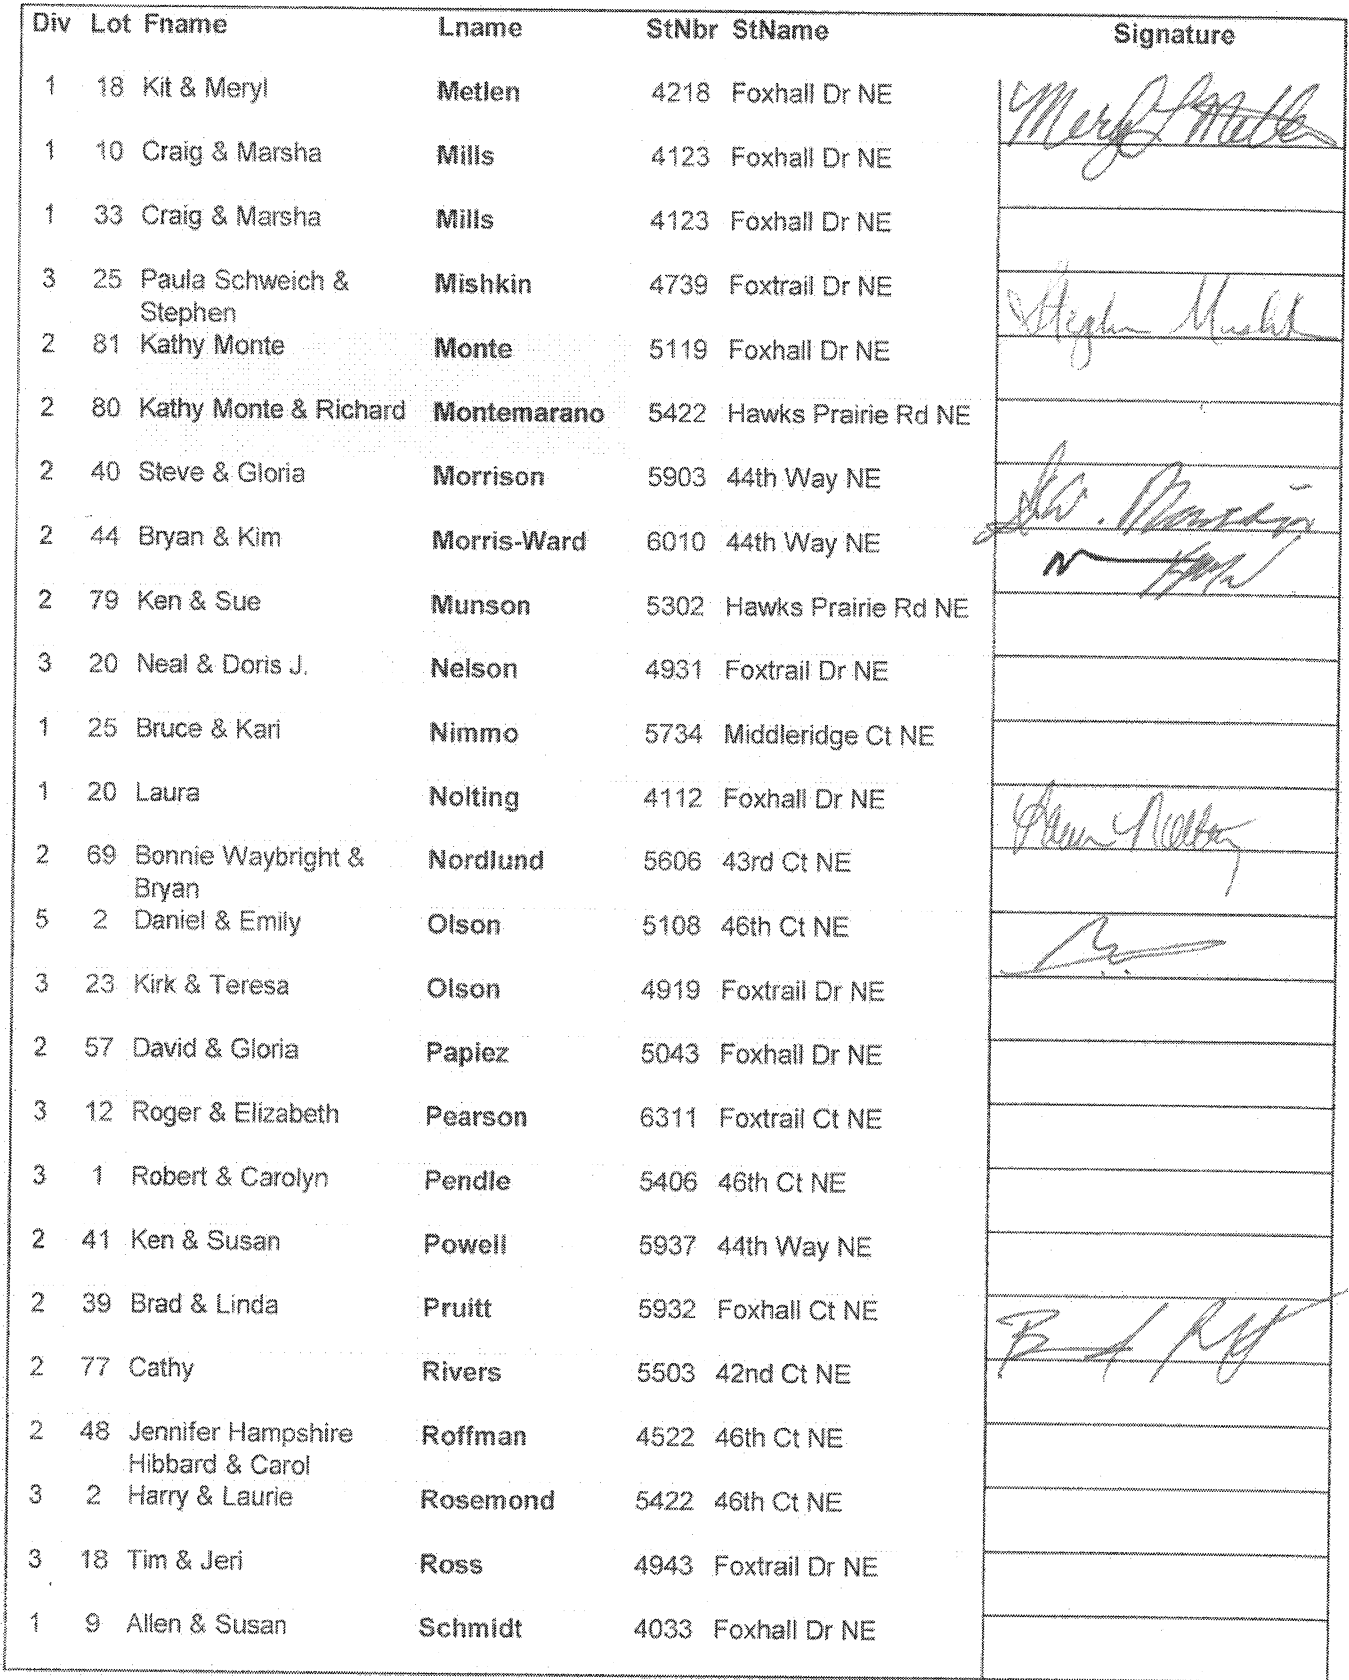 Div Lot Fname Lname StNbr StName Signature
1 18 Kit & Meryl Metlen 4218 Foxhall Dr NE Meryl L Metlen
1 10 Craig & Marsha Mills 4123 Foxhall Dr NE
1 33 Craig & Marsha Mills 4123 Foxhall Dr NE
3 25 Paula Schweich & Mishkin 4739 Foxtrail Dr NE Stephen Mishkin
Stephen
2 81 Kathy Monte Monte 5119 Foxhall Dr NE
2 80 Kathy Monte & Richard Montemarano 5422 Hawks Prairie Rd NE
2 40 Steve & Gloria Morrison 5903 44th Way NE Morrison
2 44 Bryan & Kim Morris-Ward 6010 44th Way NE
2 79 Ken & Sue Munson 5302 Hawks Prairie Rd NE
3 20 Neal & Doris J. Nelson 4931 Foxtrail Dr NE
1 25 Bruce & Kari Nimmo 5734 Middleridge Ct NE
1 20 Laura Nolting 4112 Foxhall Dr NE Laura Nolting
2 69 Bonnie Waybright & Nordlund 5606 43rd Ct NE
Bryan
5 2 Daniel & Emily Olson 5108 46th Ct NE
3 23 Kirk & Teresa Olson 4919 Foxtrail Dr NE
2 57 David & Gloria Papiez 5043 Foxhall Dr NE
3 12 Roger & Elizabeth Pearson 6311 Foxtrail Ct NE
3 1 Robert & Carolyn Pendle 5406 46th Ct NE
2 41 Ken & Susan Powell 5937 44th Way NE
2 39 Brad & Linda Pruitt 5932 Foxhall Ct NE
2 77 Cathy Rivers 5503 42nd Ct NE
2 48 Jennifer Hampshire Roffman 4522 46th Ct NE
Hibbard & Carol
3 2 Harry & Laurie Rosemond 5422 46th Ct NE
3 18 Tim & Jeri Ross 4943 Foxtrail Dr NE
1 9 Allen & Susan Schmidt 4033 Foxhall Dr NE